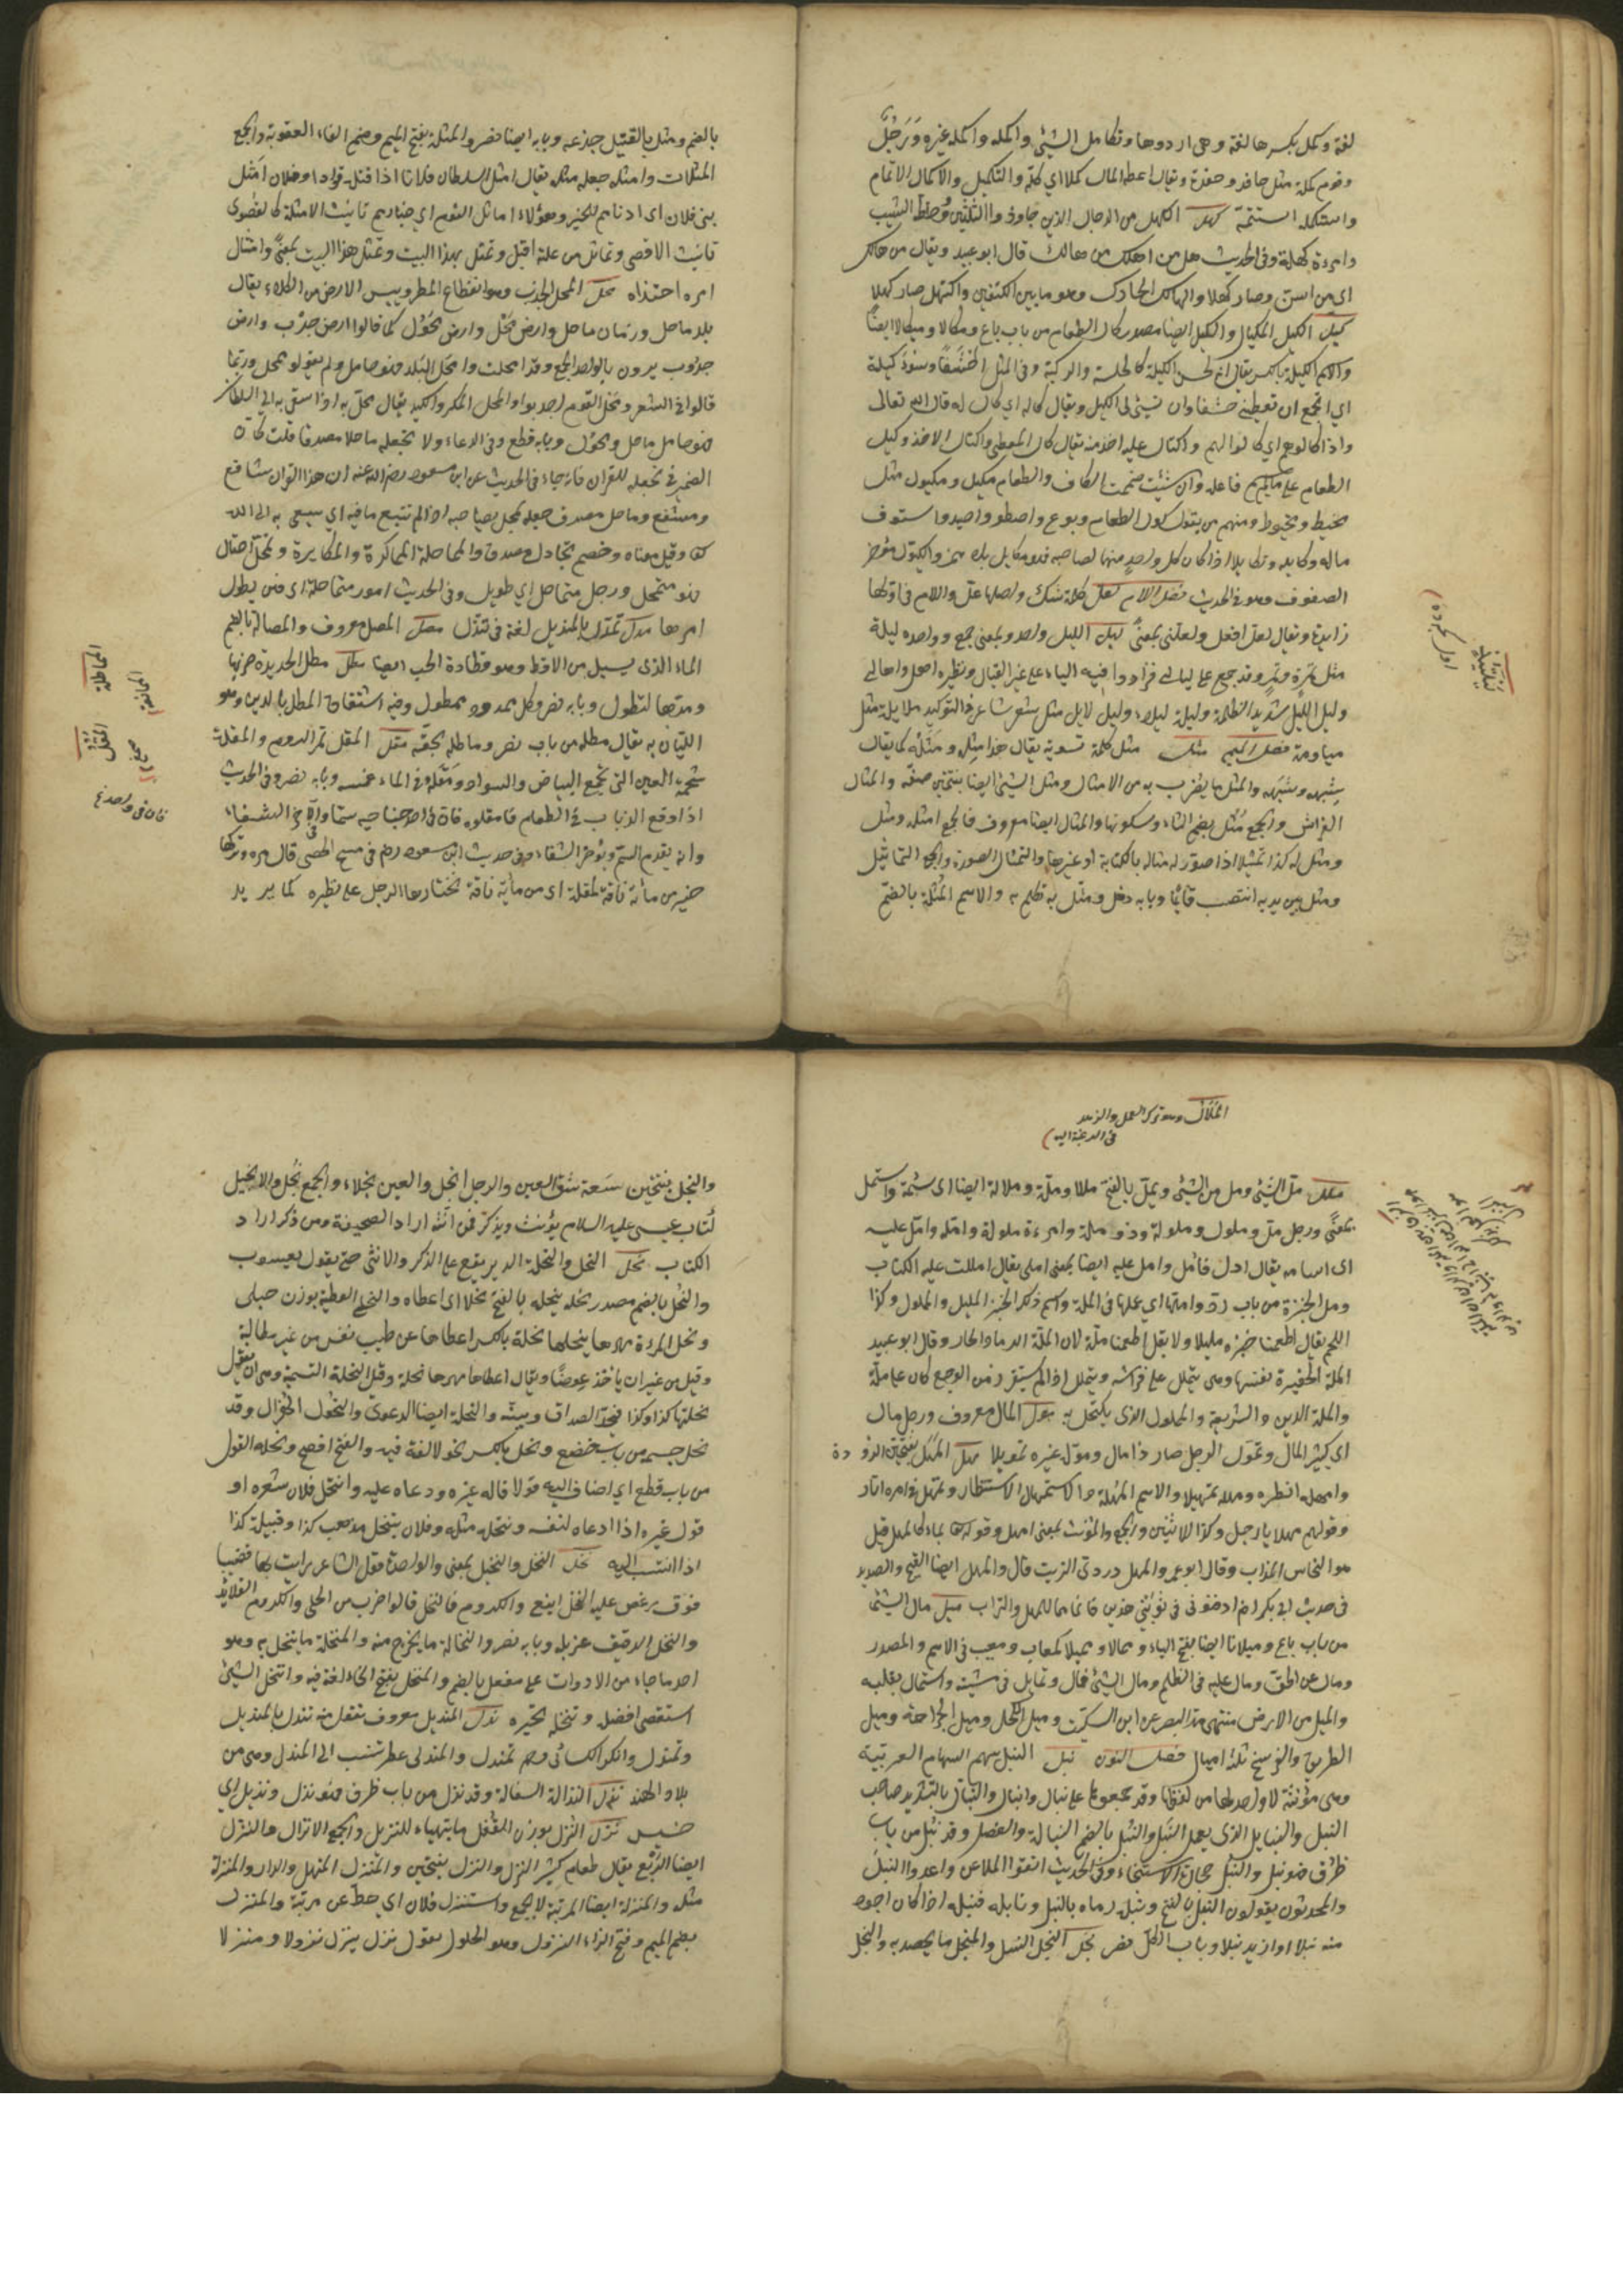 لغة وكمل بكسرها لغة وهي اردوها وتكامل الشيء واكمله واكمله غيره ورجل
وقوم كملة مثل حافد وحفدة ويقال اعطه المال كملا اي كله والتكميل والاكمال الاتمام
واستكمله استتمه كهل الكهل من الرجال الذي جاوز الثلثين وخطه الشيب
وامرءة كهلة وفي الحديث هل من اهلك من كاهل قال ابو عبيد ويقال من كاهل
اي من اسن وصار كهلا والكاهل الحارك وهو ما بين الكتفين واكتهل صار كهلا
كيل الكيل المكيال والكيل ايضا مصدر كال الطعام من باب باع ومكالا ومكيالا ايضا
والاسم الكيلة بالكسر يقال انه لحسن الكيلة كالجلسة والركبة وفي المثل احشفا وسوء كيلة
اي اتجمع ان تعطيني حشفا وان تسيء لي الكيل ويقال كاله اي كال له قال الله تعالى
واذا كالوهم اي كالوا لهم واكتال عليه اخذ منه يقال كال المعطي واكتال الاخذ وكيل
الطعام على ما لم يسم فاعله وان شئت ضممت الكاف والطعام مكيل ومكيول مثل
مخيط ومخيوط ومنهم من يقول كول الطعام وبوع واصطود واستوق
ماله وكايله وتكايلا اذا كال كل واحد منهما لصاحبه فهو مكايل بلا همز والكيول مؤخر
الصفوف وهو في الحديث فصل اللام لعل كلمة شك واصلها عل واللام في اولها
زايدة ويقال لعلي افعل ولعلني بمعنى ليل الليل واحد وبمعنى جمع وواحده ليلة
مثل تمرة وتمر وقد جمع على ليالي فزادوا فيه الياء على غير القياس ونظيره اهل واهالي
وليل اليل شديد الظلمة وليلة ليلاء وليل لايل مثل شعر شاعر في التوكيد ملايلة مثل
مياومة فصل الميم مثل مثل كلمة تسوية يقال هذا مثله ومثله كما يقال
شبهه وشبهه والمثل ما يضرب به من الامثال ومثل الشيء ايضا بفتحتين صفته والمثال
الفراش والجمع مثل بضم الثاء وسكونها والمثال ايضا معروف والجمع امثلة ومثل
ومثل له كذا تمثيلا اذا صور له مثاله بالكتابة او غيرها والتمثال الصورة والجمع التماثيل
ومثل بين يديه انتصب قائما وبابه دخل ومثل به نكل به والاسم المثلة بالضم
بالضم ومثل بالقتيل جدعه وبابه ايضا نصر والمثلة بفتح الميم وضم الثاء العقوبة والجمع
المثلات وامثله جعله مثلة يقال امثل السلطان فلانا اذا قتله قودا وفلان امثل
بني فلان اي ادناهم للخير وهؤلاء اماثل القوم اي خيارهم تانيث الامثل كالقصوى
تانيث الاقصى وتماثل من علته اقبل وتمثل بهذا البيت وتمثل هذا البيت بمعنى وامتثل
امره احتذاه محل المحل الجدب وهو انقطاع المطر ويبس الارض من الكلاء يقال
بلد ماحل وزمان ماحل وارض محل وارض محول كما قالوا ارض جدب وارض
جدوب يريدون بالواحد الجمع وقد امحلت وامحل البلد فهو ماحل ولم يقولوا محل وربما
قالوا في الشعر وامحل القوم اجدبوا والمحل المكر والكيد يقال محل به اذا سعى به الى السلطان
فهو ماحل ومحول وبابه قطع وفي الدعاء ولا تجعله ماحلا مصدقا قلت كان
الضمير في تجعله للقران فانه جاء في الحديث عن ابن مسعود رضي الله عنه ان هذا القران شافع
ومشفع وماحل مصدق جعله يمحل بصاحبه اذا لم يتبع ما فيه اي يسعى به الى الله
تعالى وقيل معناه وخصم مجادل مصدق والمماحلة المماكرة والمكايدة وتمحل احتال
فهو متمحل ورجل متماحل اي طويل وفي الحديث امور متماحلة اي فتن يطول
امرها مدل تمدل بالمنديل لغة في تندل مصل المصل معروف والمصالة بالضم
الماء الذي يسيل من الاقط وهو قطارة الحب ايضا مطل مطل الحديدة ضربها
ومدها لتطول وبابه نصر وكل ممدود ممطول ومنه اشتقاق المطل بالدين وهو
الليان به يقال مطله من باب نصر وماطله بحقه مقل المقل ثمر الدوم والمقلة
شحمة العين التي تجمع البياض والسواد ومقله في الماء غمسه وبابه نصر وفي الحديث
اذا وقع الذباب في الطعام فامقلوه فان في احد جناحيه سما والاخر الشفاء
وانه يقدم السم ويؤخر الشفاء وفي حديث ابن مسعود رضم في مسح الحصى قال مرة وتركها
خير من مائة ناقة لمقلة اي من مائة ناقة يختارها الرجل على نظره كما يريد
الملال وهو ترك العمل والزهد
في الرغبة اليه
ملل مل الشيء ومل من الشيء ويمل بالفتح مللا وملة وملالة ايضا اي سئمه واستمل
بمعنى ورجل مل وملول وملولة وذو ملة وامرءة ملولة وامله وامل عليه
اي اسامه يقال ادل فامل وامل عليه ايضا بمعنى املى يقال امللت عليه الكتاب
ومل الخبزة من باب رد وامتلها اي عملها في الملة واسم ذلك الخبز المليل والمملول وكذا
اللحم يقال اطعمنا خبزة مليلا ولا يقل اطعمنا ملة لان الملة الرماد الحار وقال ابو عبيد
الملة الحفيرة نفسها وهو يتململ على فراشه ويتملل اذا لم يستقر من الوجع كانه على ملة
والملة الدين والشريعة والملمول الذي يكتحل به مول المال معروف ورجل مال
اي كثير المال وتمول الرجل صار ذا مال وموله غيره تمويلا مهل المهل بفتحتين التؤدة
وامهله انظره ومهله تمهيلا والاسم المهلة والاستمهال الاستنظار وتمهل في امره اتاد
وقولهم مهلا يا رجل وكذا الاثنين والجمع والمؤنث بمعنى امهل وقوله تعالى بماء كالمهل قيل
هو النحاس المذاب وقال ابو عمرو المهل دردي الزيت قال والمهل ايضا القيح والصديد
في حديث ابي بكر رضم ادفنوني في ثوبي هذين فانما هما للمهل والتراب ميل مال الشيء
من باب باع وميلانا ايضا بفتح الياء وممالا ومميلا كمعاب ومعيب في الاسم والمصدر
ومال عن الحق ومال عليه في الظلم ومال الشيء فمال وتمايل في مشيته واستمال بقلبه
والميل من الارض منتهى مد البصر عن ابن السكيت وميل الكحل وميل الجراحة وميل
الطريق والفرسخ ثلثة اميال فصل النون نبل النبل سهم السهام العربية
وهي مؤنثة لا واحد لها من لفظها وقد جمعوها على نبال وانبال والنبال بالتشديد صاحب
النبل والنابل الذي يعمل النبل والنبل بالضم النبالة والفضل وقد نبل من باب
ظرف فهو نبيل والنبل حجارة الاستنجاء وفي الحديث اتقوا الملاعن واعدوا النبل
والمحدثون يقولون النبل بالفتح ونبله رماه بالنبل ونابله فنبله اذا كان اجود
منه نبلا او ازيد نبلا وباب الكل نصر نجل النجل النسل والمنجل ما يحصد به والنجل
والنجل بفتحتين سعة شق العين والرجل انجل والعين نجلاء والجمع نجل والانجيل
كتاب عيسى عليه السلام يؤنث ويذكر فمن انثه اراد الصحيفة ومن ذكر اراد
الكتاب نحل النحل والنحلة الدبر يقع على الذكر والانثى حتى يقول يعسوب
والنحل بالضم مصدر نحله ينحله بالفتح نحلا اي اعطاه والنحلى العطية بوزن حبلى
ونحل المرءة مهرها ينحلها نحلة بالكسر اعطاها عن طيب نفس من غير مطالبة
وقيل من غير ان ياخذ عوضا ويقال اعطاها مهرها نحلة وقيل النحلة التسمية وهي ان يقول
نحلتها كذا وكذا فيحد الصداق ويبينه والنحلة ايضا الدعوى والنحول الهزال وقد
نحل جسمه من باب خضع ونحل بالكسر نحولا لغة فيه والفتح افصح ونحله القول
من باب قطع اي اضاف اليه قولا قاله غيره وادعاه عليه وانتحل فلان شعره او
قول غيره اذا ادعاه لنفسه وتنحله مثله وفلان ينتحل مذهب كذا وقبيلة كذا
اذا انتسب اليه نخل النخل والنخيل بمعنى والواحدة نخلة قول الشاعر رايت بها قضيبا
فوق دعص عليه النخل اينع والكروم فالنخل قالوا ضرب من الحلي والكروم القلائد
والنخل الدقيق غربله وبابه نصر والنخالة ما يخرج منه والمنخل ما ينخل به وهو
احد ما جاء من الادوات على مفعل بالضم والمنخل بفتح الخاء لغة فيه وانتخل الشيء
استقصى افضله وتنخله تخيره ندل المنديل معروف تقول منه تندل بالمنديل
وتمندل وانكر الكسائي وهم تمندل والمندلي عطر تنسب الى المندل وهي من
بلاد الهند نذل النذالة السفالة وقد نذل من باب ظرف فهو نذل ونذيل اي
خسيس نزل النزل بوزن القفل ما يتهياء للنزيل والجمع الانزال والنزل
ايضا الريع يقال طعام كثير النزل والنزل بفتحتين والمنزل المنهل والدار والمنزلة
مثله والمنزلة ايضا المرتبة لا يجمع واستنزل فلان اي حط عن مرتبة والمنزل
بضم الميم وفتح الزاء النزول وهو الحلول تقول نزل ينزل نزولا ومنزلا